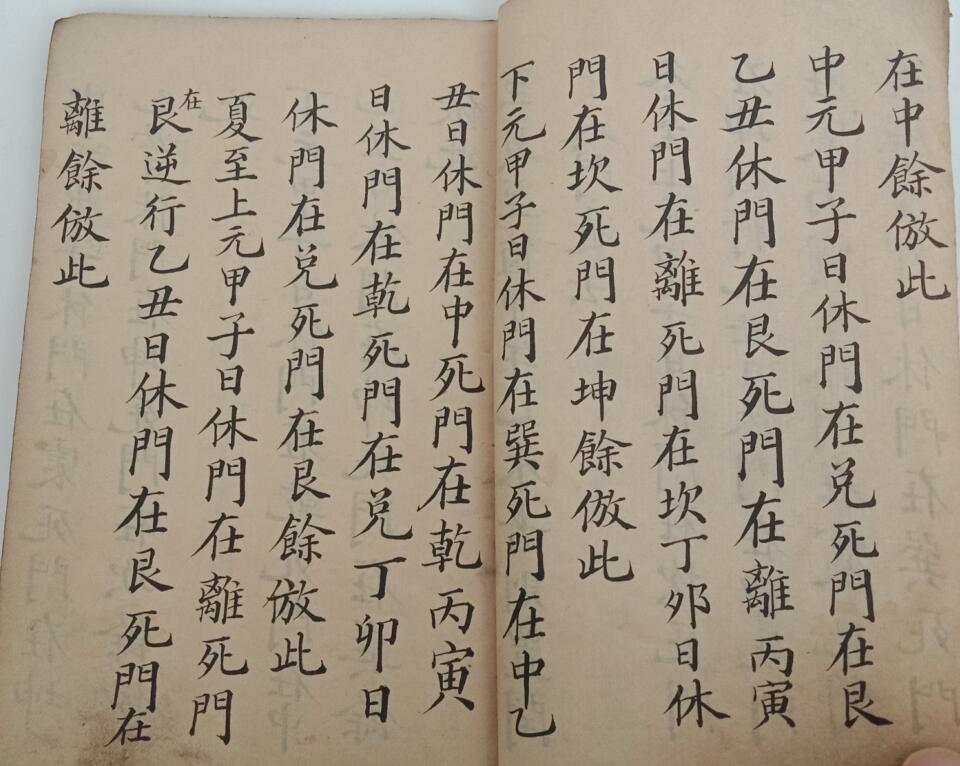 在中餘倣此
中元甲子日休門在兌死門在艮
乙丑休門在艮死門在離丙寅
日休門在離死門在坎丁夘日休
門在坎死門在坤餘倣此
下元甲子日休門在巽死門在中乙
丑日休門在中死門在乾丙寅
日休門在乾死門在兌丁卯日
休門在兌死門在艮餘倣此
夏至上元甲子日休門在離死門
在艮逆行乙丑日休門在艮死門在
離餘倣此